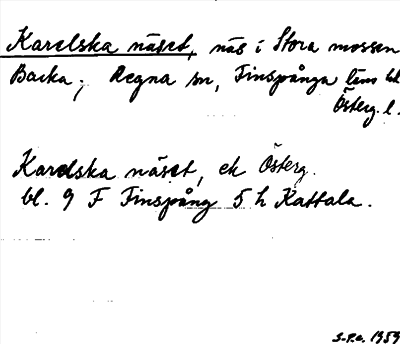 Karelska näset, näs i Stora mossen
Backa; Regna sn, Finspånga läns hd
Österg. l.
Karelska näset, ek Österg.
bl. 9 F Finspång 5 h Kattala.
1959